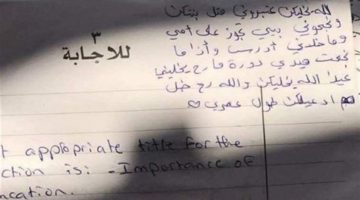 ٣
للاجابة
الله يخليكن عتبروني متل بنتكن
ونجحوني بيي تجوز على أمي
وما خلوني أدرس وأذا ما
نجحت هيدي دورة مارح يخليني
عيدا الله يخليكن والله رح ضل
ادعيلكن طول عمري ♥
t appropriate title for the
ction is: - Importance of
ucation.